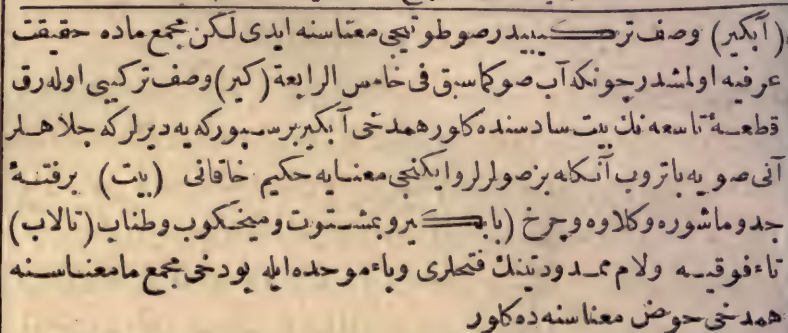 (آبكير) وصف تركيبيدر صوطوتيجى معناسنه ايدى لكن مجمع ماده حقيقت
عرفيه اولمشدر چونكه آب صو كماسبق فى خامس الرابعة (كير) وصف تركيبى اوله رق
قطعۀ تاسعه نك بيت سادسنده كلور همدخى آبكير برسپوركه يه ديرلر كه جلاهلر
آنى صويه باتروب آنكله بز صولرلر وايكنجى معنايه حكيم خاقانى (بيت) برفتۀ
جد وماشوره وكلاوه وچرخ (بابكير وبمشتوت وميخكوب وطناب (تالاب)
تاء فوقيه ولام ممدودتينك فتحلرى وباء موحده ايله بودخى مجمع ما معناسنه
همدخى حوض معناسنه ده كلور